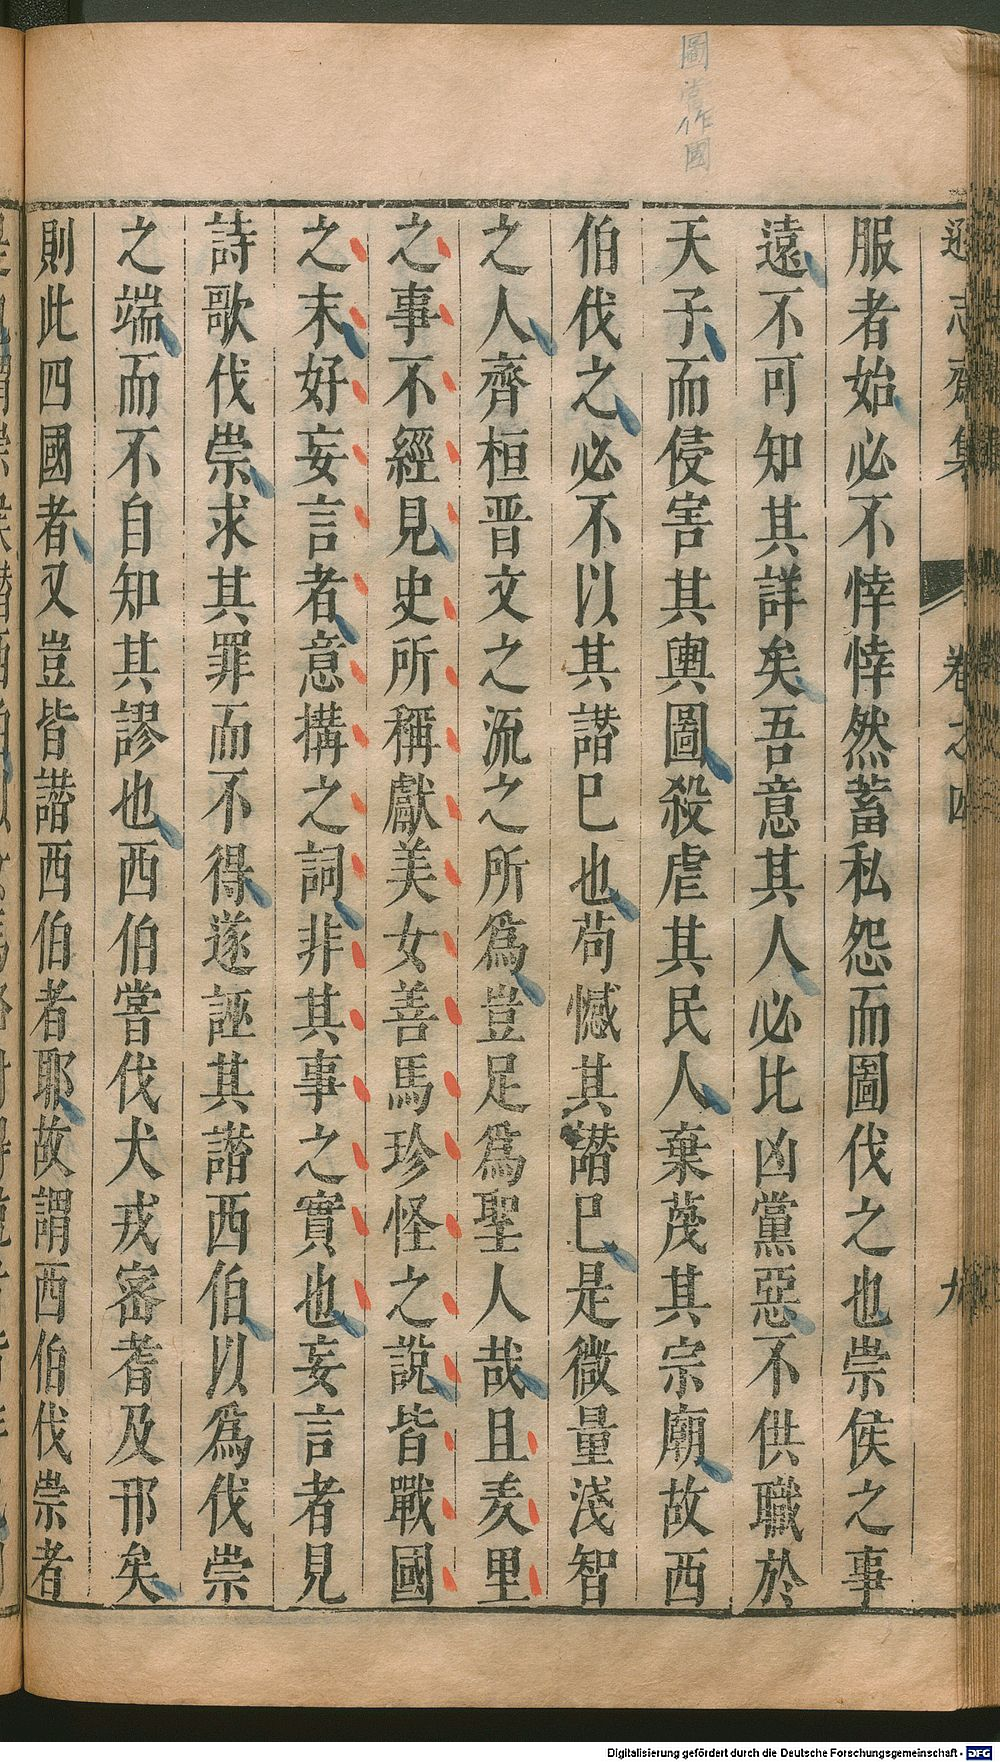 圖當作國
遜志齋集
卷之四
九
服者始必不悻悻然蓄私怨而圖伐之也崇侯之事
遠不可知其詳矣吾意其人必比凶黨惡不供職於
天子而侵害其輿圖殺虐其民人棄蔑其宗廟故西
伯伐之必不以其譖巳也苟憾其譖巳是微量淺智
之人齊桓晋文之流之所爲豈足爲聖人哉且羑里
之事不經見史所稱獻美女善馬珍怪之說皆戰國
之末好妄言者意搆之詞非其事之實也妄言者見
詩歌伐崇求其罪而不得遂誣其譖西伯以爲伐崇
之端而不自知其謬也西伯嘗伐犬戎密耆及邘矣
則此四國者又豈皆譖西伯者耶故謂西伯伐崇者
Digitalisierung gefördert durch die Deutsche Forschungsgemeinschaft - DFG